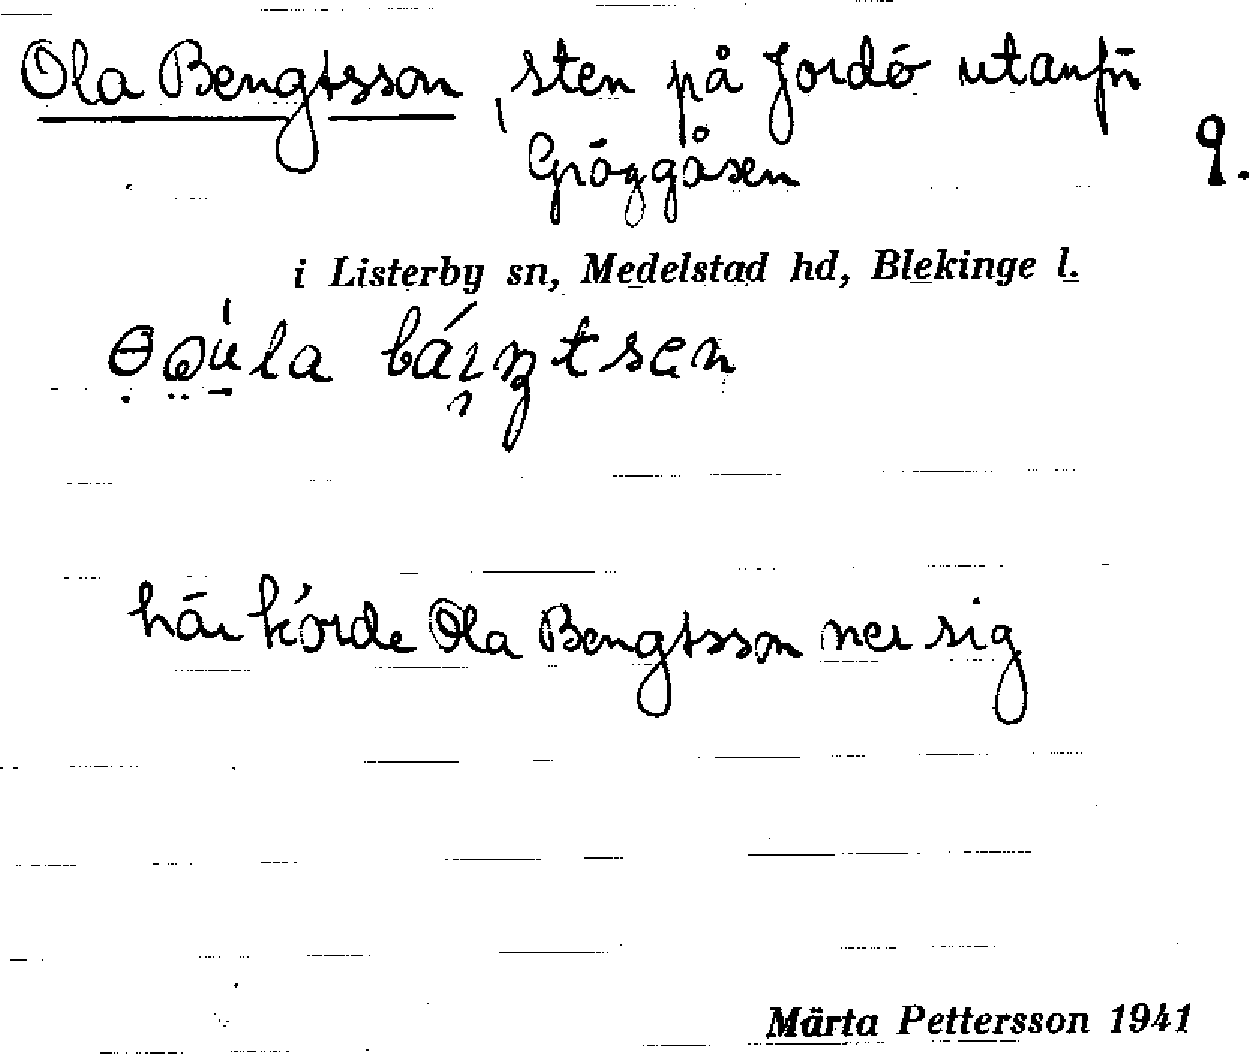 Ola Bengtsson, sten på Jordö utanför
Gröggåsen
9.
i Listerby sn, Medelstad hd, Blekinge l.
här körde Ola Bengtsson ner sig
Märta Pettersson 1941